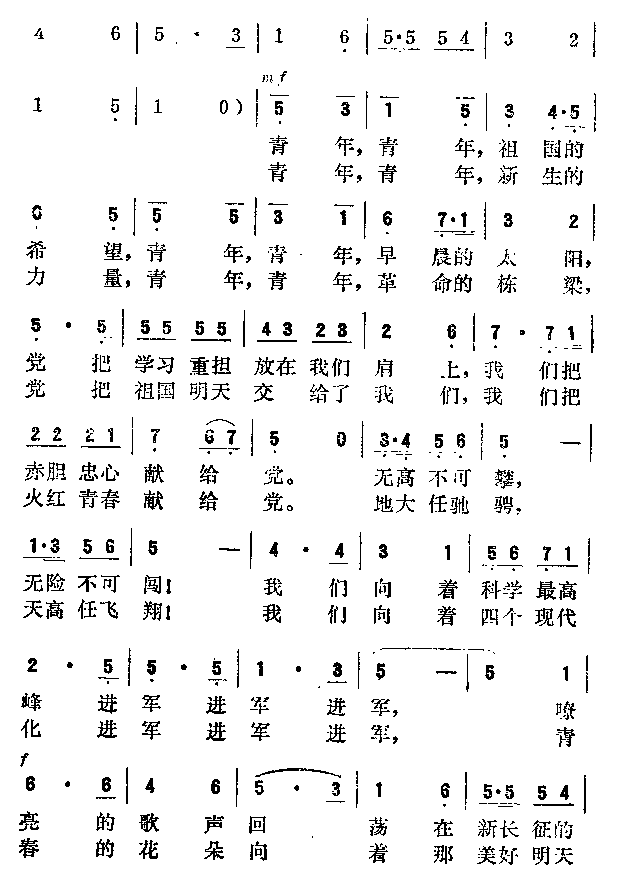 4 6 | 5 · 3 | 1 6 | 5·5 5 4 | 3 2
mf
1 5 | 1 0) | 5 3 | 1 5 | 3 4·5
青 年, 青 年, 祖 国的
青 年, 青 年, 新 生的
0 5 | 5 5 | 3 1 | 6 7·1 | 3 2
希 望, 青 年, 青 年, 早 晨的 太 阳,
力 量, 青 年, 青 年, 革 命的 栋 梁,
5 · 5 | 55 55 | 43 23 | 2 6 | 7 · 71
党 把 学习 重担 放在 我们 肩 上, 我 们把
党 把 祖国 明天 交 给了 我 们, 我 们把
22 21 | 7 67 | 5 0 | 3·4 56 | 5 —
赤胆 忠心 献 给 党。 无高 不可 攀,
火红 青春 献 给 党。 地大 任驰 骋,
1·3 56 | 5 — | 4 · 4 | 3 1 | 56 71
无险 不可 闯! 我 们 向 着 科学 最高
天高 任飞 翔! 我 们 向 着 四个 现代
2 · 5 | 5 · 5 | 1 · 3 | 5 — | 5 1
峰 进 军 进 军 进 军, 嘹
化 进 军 进 军 进 军, 青
f
6 · 6 | 4 6 | 5 · 3 | 1 6 | 5·5 54
亮 的 歌 声 回 荡 在 新长 征的
春 的 花 朵 向 着 那 美好 明天